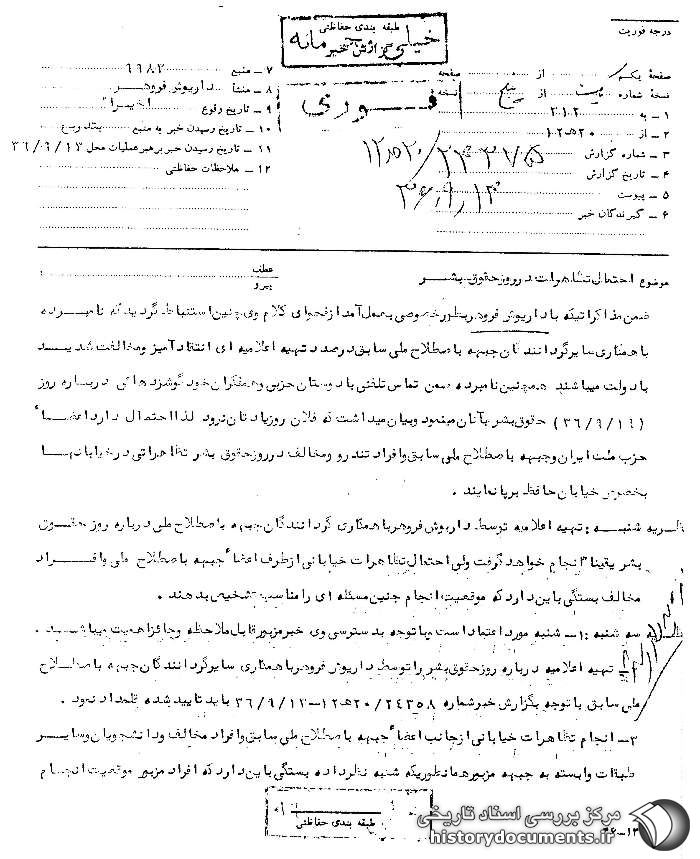 درجه فوریت
طبقه بندی حفاظتی
خیلی محرمانه
گزارش خبر
صفحه یکم از صفحه
نسخه شماره از نسخه
فوری
۱ ـ به ۲۱۲
۲ ـ از ۲۰هـ۱۲
۳ ـ شماره گزارش
۴ ـ تاریخ گزارش
۵ ـ پیوست
۶ ـ گیرندگان خبر
۷ ـ منبع ۶۹۸۲
۸ ـ منشأ داریوش فروهر
۹ ـ تاریخ وقوع اخیراً
۱۰ ـ تاریخ رسیدن خبر به منبع
۱۱ ـ تاریخ رسیدن خبر برهبر عملیات محل ۳۶/۹/۱۳
۱۲ ـ ملاحظات حفاظتی
موضوع احتمال تظاهرات در روز حقوق بشر
عطف
پیرو
ضمن مذاکراتیکه با داریوش فروهر بطور خصوصی بعمل آمد از فحوای کلام وی چنین استنباط گردید که نامبرده
با همکاری سایر گردانندگان جبهه باصطلاح ملی سابق درصدد تهیه اعلامیه ای انتقاد آمیز و مخالفت شدید
با دولت میباشند همچنین نامبرده ضمن تماس تلفنی با دوستان حزبی و همفکران خود گوشزدهائی درباره روز
(۳۶/۹/۱۹) حقوق بشر بآنان مینمود و بیان میداشت که فلان روز یادتان نرود لذا احتمال دارد اعضاء
حزب ملت ایران و جبهه باصطلاح ملی سابق و افراد تندرو و مخالف در روز حقوق بشر تظاهراتی در خیابانها
بخصوص خیابان حافظ برپا نمایند .
نظریه شنبه : تهیه اعلامیه توسط داریوش فروهر با همکاری گردانندگان جبهه باصطلاح ملی درباره روز حقوق
بشر یقیناً انجام خواهد گرفت ولی احتمال تظاهرات خیابانی از طرف اعضاء جبهه باصطلاح ملی و افراد
مخالف بستگی باین دارد که موقعیت انجام چنین مسئله ای را مناسب تشخیص بدهند .
نظریه سه شنبه : ۱ـ شنبه مورد اعتماد است و با توجه به دسترسی وی خبر مزبور قابل ملاحظه و حائز اهمیت میباشد .
۲ـ تهیه اعلامیه درباره روز حقوق بشر را توسط داریوش فروهر با همکاری سایر گردانندگان جبهه باصطلاح
ملی سابق با توجه بگزارش خبر شماره ۲۴۳۵۸/۲۰هـ۱۲ـ۳۶/۹/۱۲ باید تایید شده قلمداد نمود .
۳ـ انجام تظاهرات خیابانی از جانب اعضاء جبهه باصطلاح ملی سابق و افراد مخالف و دانشجویان و سایر
طبقات وابسته به جبهه مزبور همانطوریکه شنبه نظر داده بستگی باین دارد که افراد مزبور موقعیت انجام
طبقه بندی حفاظتی
مرکز بررسی اسناد تاریخی
historydocuments.ir